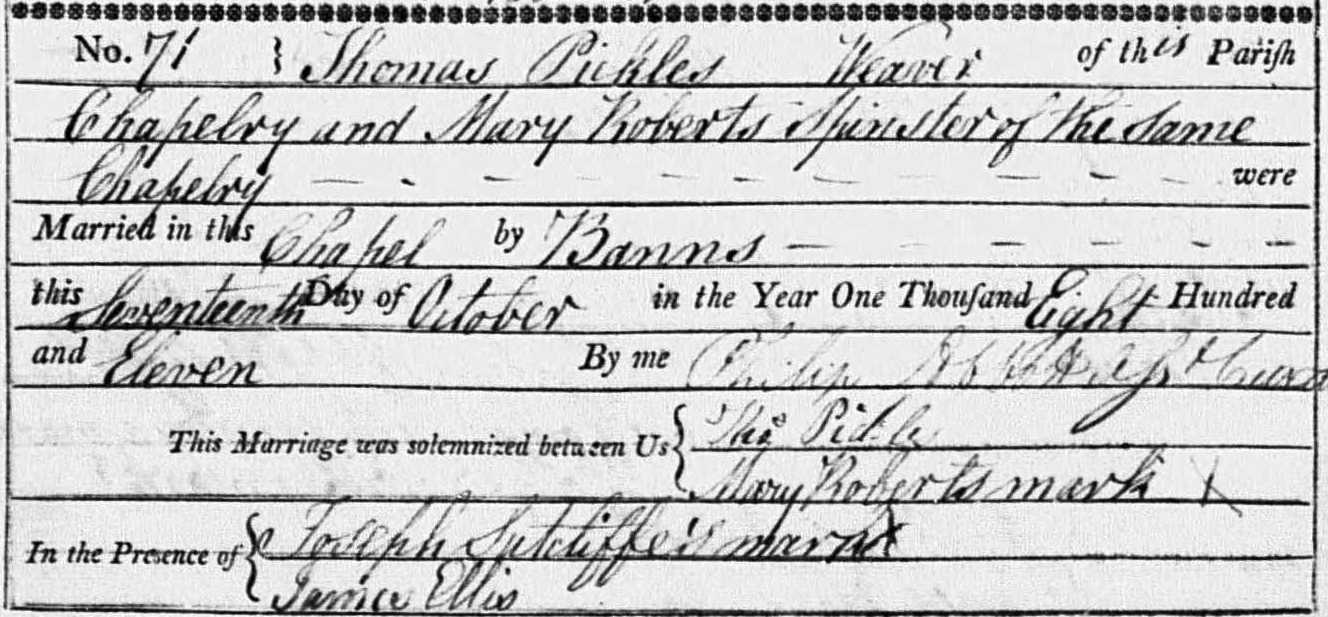 No. 71 } Thomas Pickles Weaver of this Pariſh
Chapelry and Mary Roberts Spinster of the same
Chapelry — - — - - - - - - - - were
Married in this Chapel by Banns — - - - - -
this Seventeenth Day of October in the Year One Thouſand Eight Hundred
and Eleven By me Philip
This Marriage was solemnized between Us { Thos Pickles
Mary Roberts mark X
In the Presence of { Joseph Sutcliffe's mark X
James Ellis